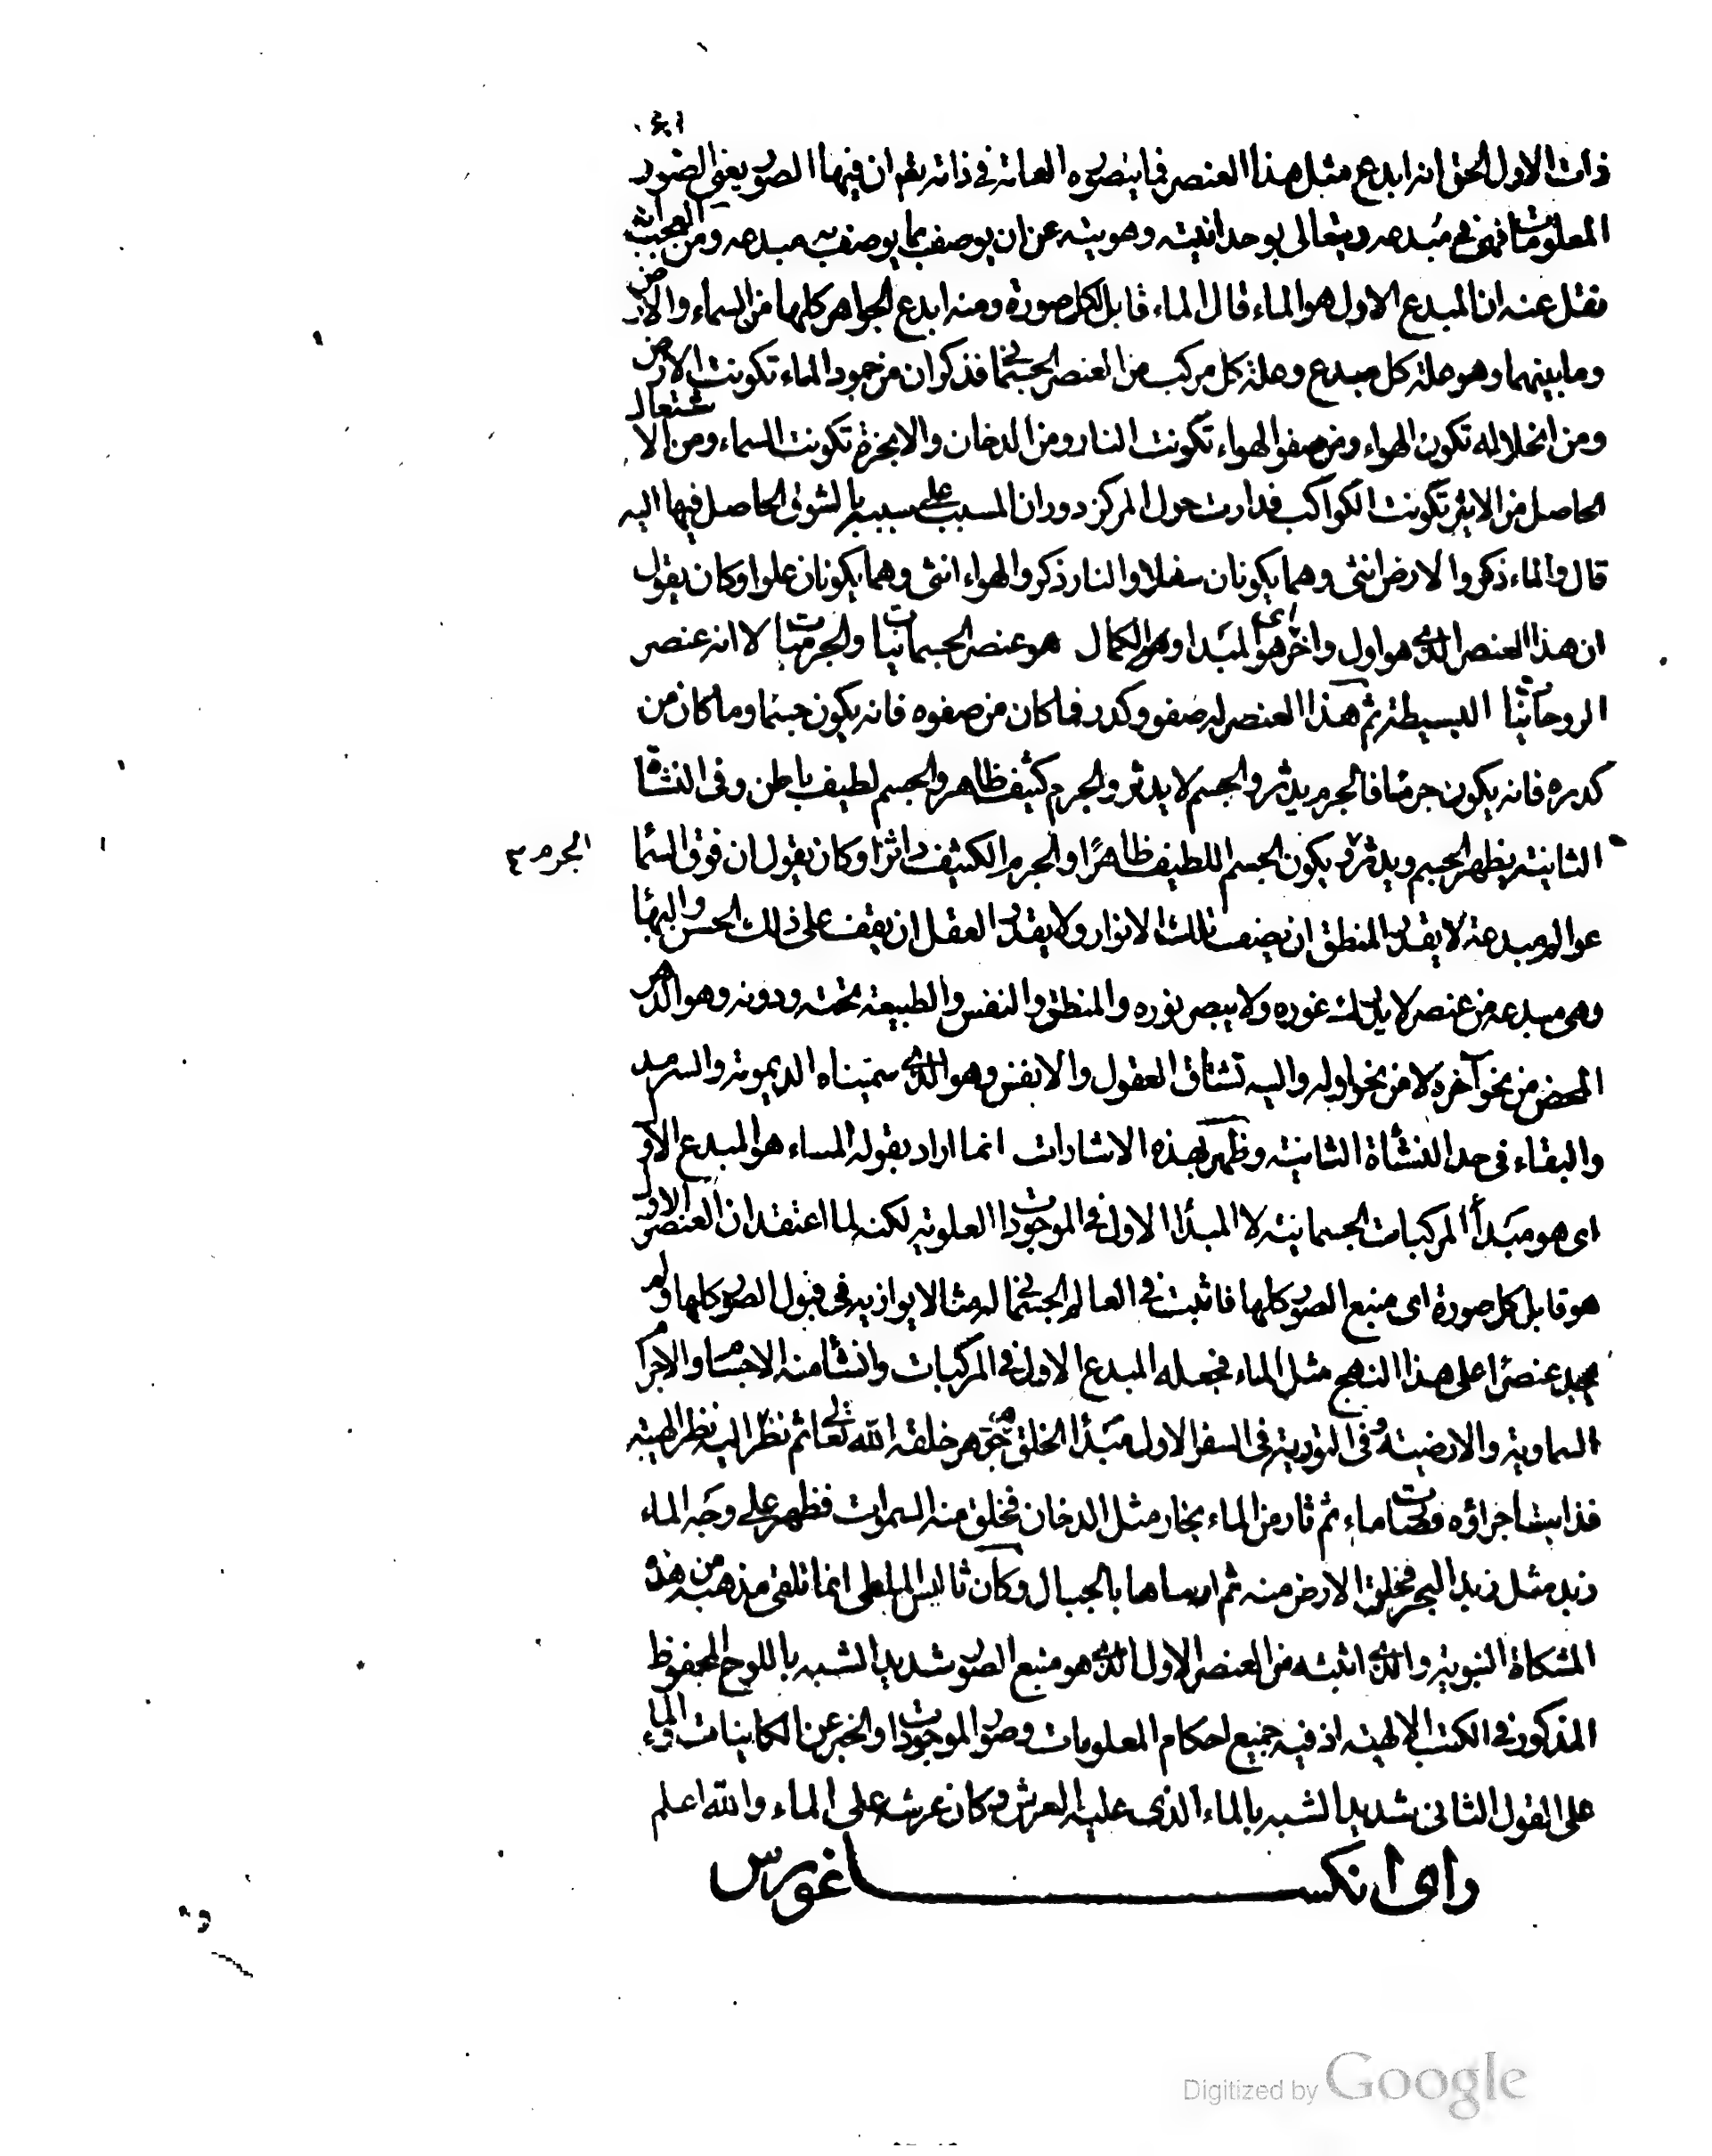 ذات الاول الحق انه ابدع مثل هذا العنصر فما يتصوره العامة في ذاته تعم ان فيها الصور يعني الصور
المعلومات فهي في مبدعه ويتعالى بوحدانيته وهويته عن ان يوصف بما يوصف به مبدعه ومن العجب انه
نقل عنه ان المبدع الاول هو الماء قال الماء قابل لكل صورة ومنه ابدع الجواهر كلها من السماء والارض
وما بينهما وهو علة كل مبدع وعلة كل مركب من العنصر الجسماني فذكر ان من جمود الماء تكونت الارض
ومن انحلاله تكون الهواء ومن صفو الهواء تكونت النار ومن الدخان والابخرة تكونت السماء ومن الاشتعال
الحاصل من الاثير تكونت الكواكب فدارت حول المركز دوران المسبب على سببه بالشوق الحاصل فيها اليه
قال والماء ذكر والارض انثى وهما يكونان سفلا والنار ذكر والهواء انثى وهما يكونان علوا وكان يقول
ان هذا العنصر الذي هو اول واخر اي هو المبدا وهو الكمال هو عنصر الجسمانيات والجرميات لا انه عنصر
الروحانيات البسيطة ثم هذا العنصر له صفو وكدر فما كان من صفوه فانه يكون جسما وما كان من
كدره فانه يكون جرما فالجرم يدثر والجسم لا يدثر والجرم كثيف ظاهر والجسم لطيف باطن وفي النشاة
الثانية يظهر الجسم ويدثر و يكون الجسم اللطيف ظاهرًا والجرم الكثيف داثرًا وكان يقول ان فوق السما
الجرم
عوالم مبدعة لا يقدر المنطق ان يصف تلك الانوار ولا يقدر العقل ان يقف على ذلك الحسن والبها
وهي مبدعه من عنصر لا يدرك غوره ولا يبصر نوره والمنطق والنفس والطبيعة تحته ودونه وهو الدهر
المحض من نحو آخره لا من نحو اوله واليه تشتاق العقول والانفس وهو الذي سميناه الديمومة والسرمد
والبقاء في حد النشأة الثانية وظهر بهذه الاشارات انما اراد بقوله الماء هو المبدع الاول
اى هو مبدأ المركبات الجسمانية لا المبدأ الاول في الموجودات العلوية لكنه لما اعتقد ان العنصر الاول
هو قابل كل صورة اى منبع الصور كلها فاثبت في العالم الجسماني له مثالا يوازيه في قبول الصور كلها ولم
يجد عنصرًا على هذا النهج مثل الماء فجعله المبدع الاول في المركبات وانشأ منه الاجسام والاجرام
السماوية والارضية وفي التورية في السفر الاول مبدأ الخلق هو جوهر خلقه الله تعالى ثم نظر اليه نظر الهيبة
فذابت اجزاؤه فصارت ماء ثم ثار من الماء بخار مثل الدخان فخلق منه السموات فظهر على وجه الماء
زبد مثل زبد البحر فخلق الارض منه ثم ارساها بالجبال وكان ثاليس الملطى انما تلقى مذهبه من هذه
المشكاة النبوية والذي اثبته من العنصر الاول الذي هو منبع الصور شديد الشبه باللوح المحفوظ
المذكور في الكتب الالهية اذ فيه جميع احكام المعلومات وصور الموجودات والخبر عن الكاينات والماء
على القول الثاني شديد الشبه بالماء الذى عليه العرش وكان عرشه على الماء والله اعلم
راى انكساغورس
Digitized by Google